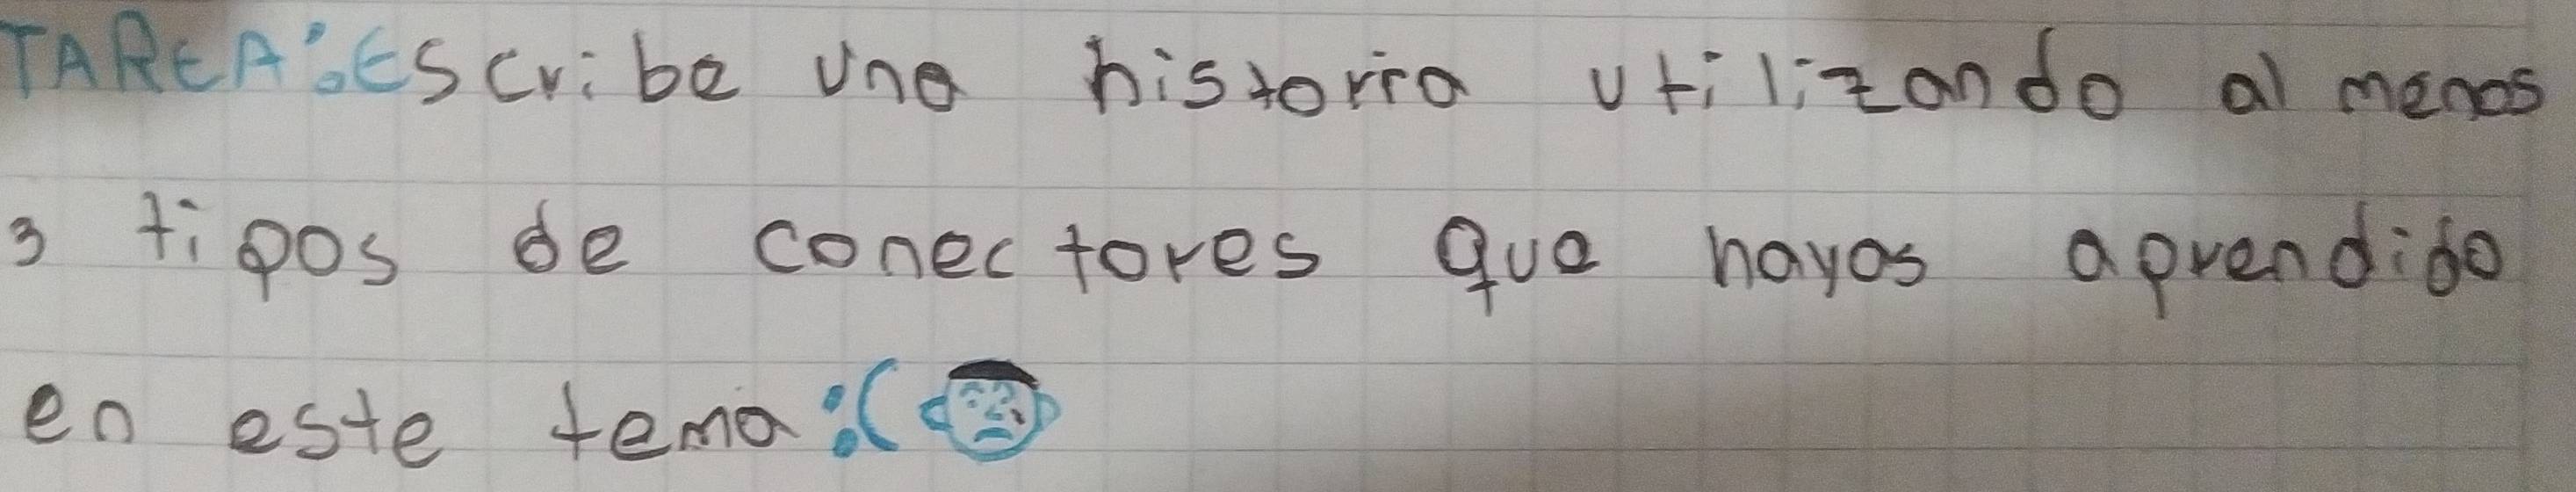 TAREA: Escribe una historia utilizando al menos
3 tipos de conectores que hayas aprendido
en este tema :(